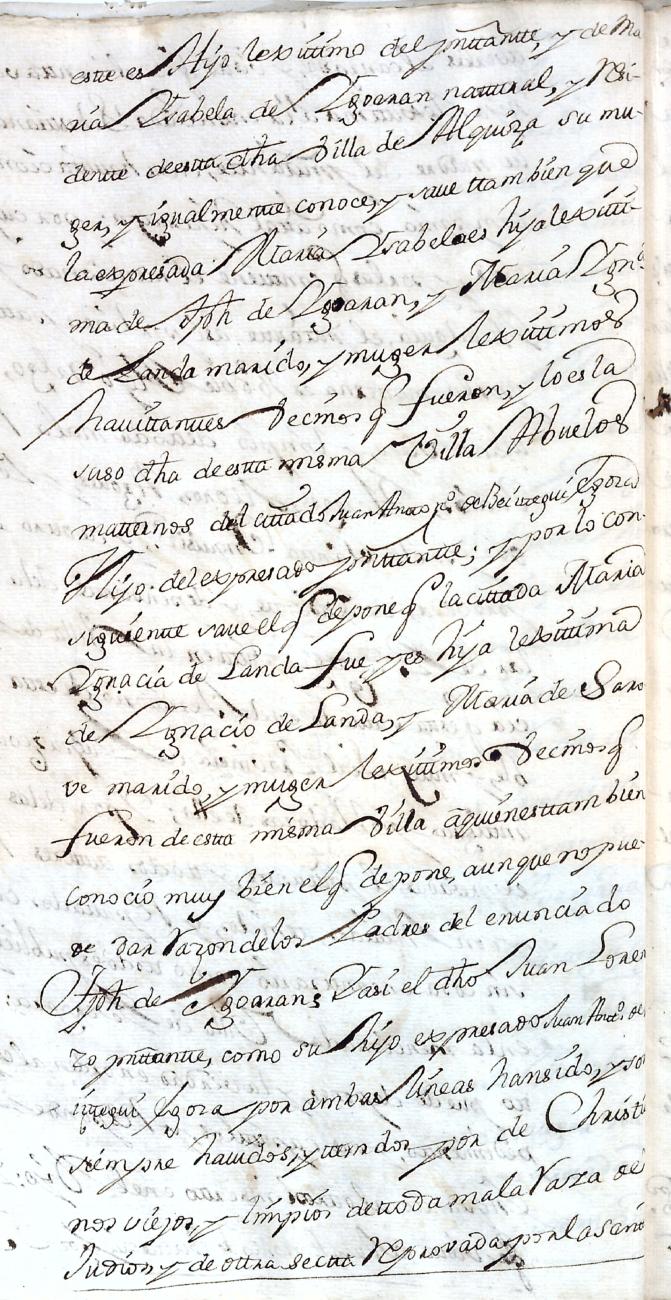 este es Hijo lexittimo del presttantte, y de Ma
ria Ysabela de Ygoaran natural, y Resi-
dentte de esta dha Villa de Alquiza su mu-
ger, y igualmente conoce, y save ttambien que
la expresada Maria Ysabela es hija lexitti-
ma de Jph de Ygoaran, y Maria Ygna
de Landa marido, y muger lexittimos
havittanttes Vecinos q fueron, y lo es la
suso dha de esta misma Villa Abuelos
matternos del cittado Juan Antto de Beiztegui Egora
Hijo del expresado presttantte; y por lo con-
siguientte save el q depone q la cittada Maria
Ygnacia de Landa fue y es hija lexittima
de Ygnacio de Landa, y Maria de Saro
ve marido, y muger lexittimos Vecinos q
fueron de esta misma Villa a quienes ttambien
conocio muy bien el q depone, aunque no pue-
de dar razon de los Padres del enunciado
Jph de Ygoaran; Y asi el dho Juan Loren
zo presttantte, como su hijo expresado Juan Antto de
iztegui Egora por ambas lineas han sido, y son
siempre havidos, y ttenidos por de Christi
nos viejos, y limpios de ttoda mala Raza de
Judios y de ottra sectta Reprovada por la santa